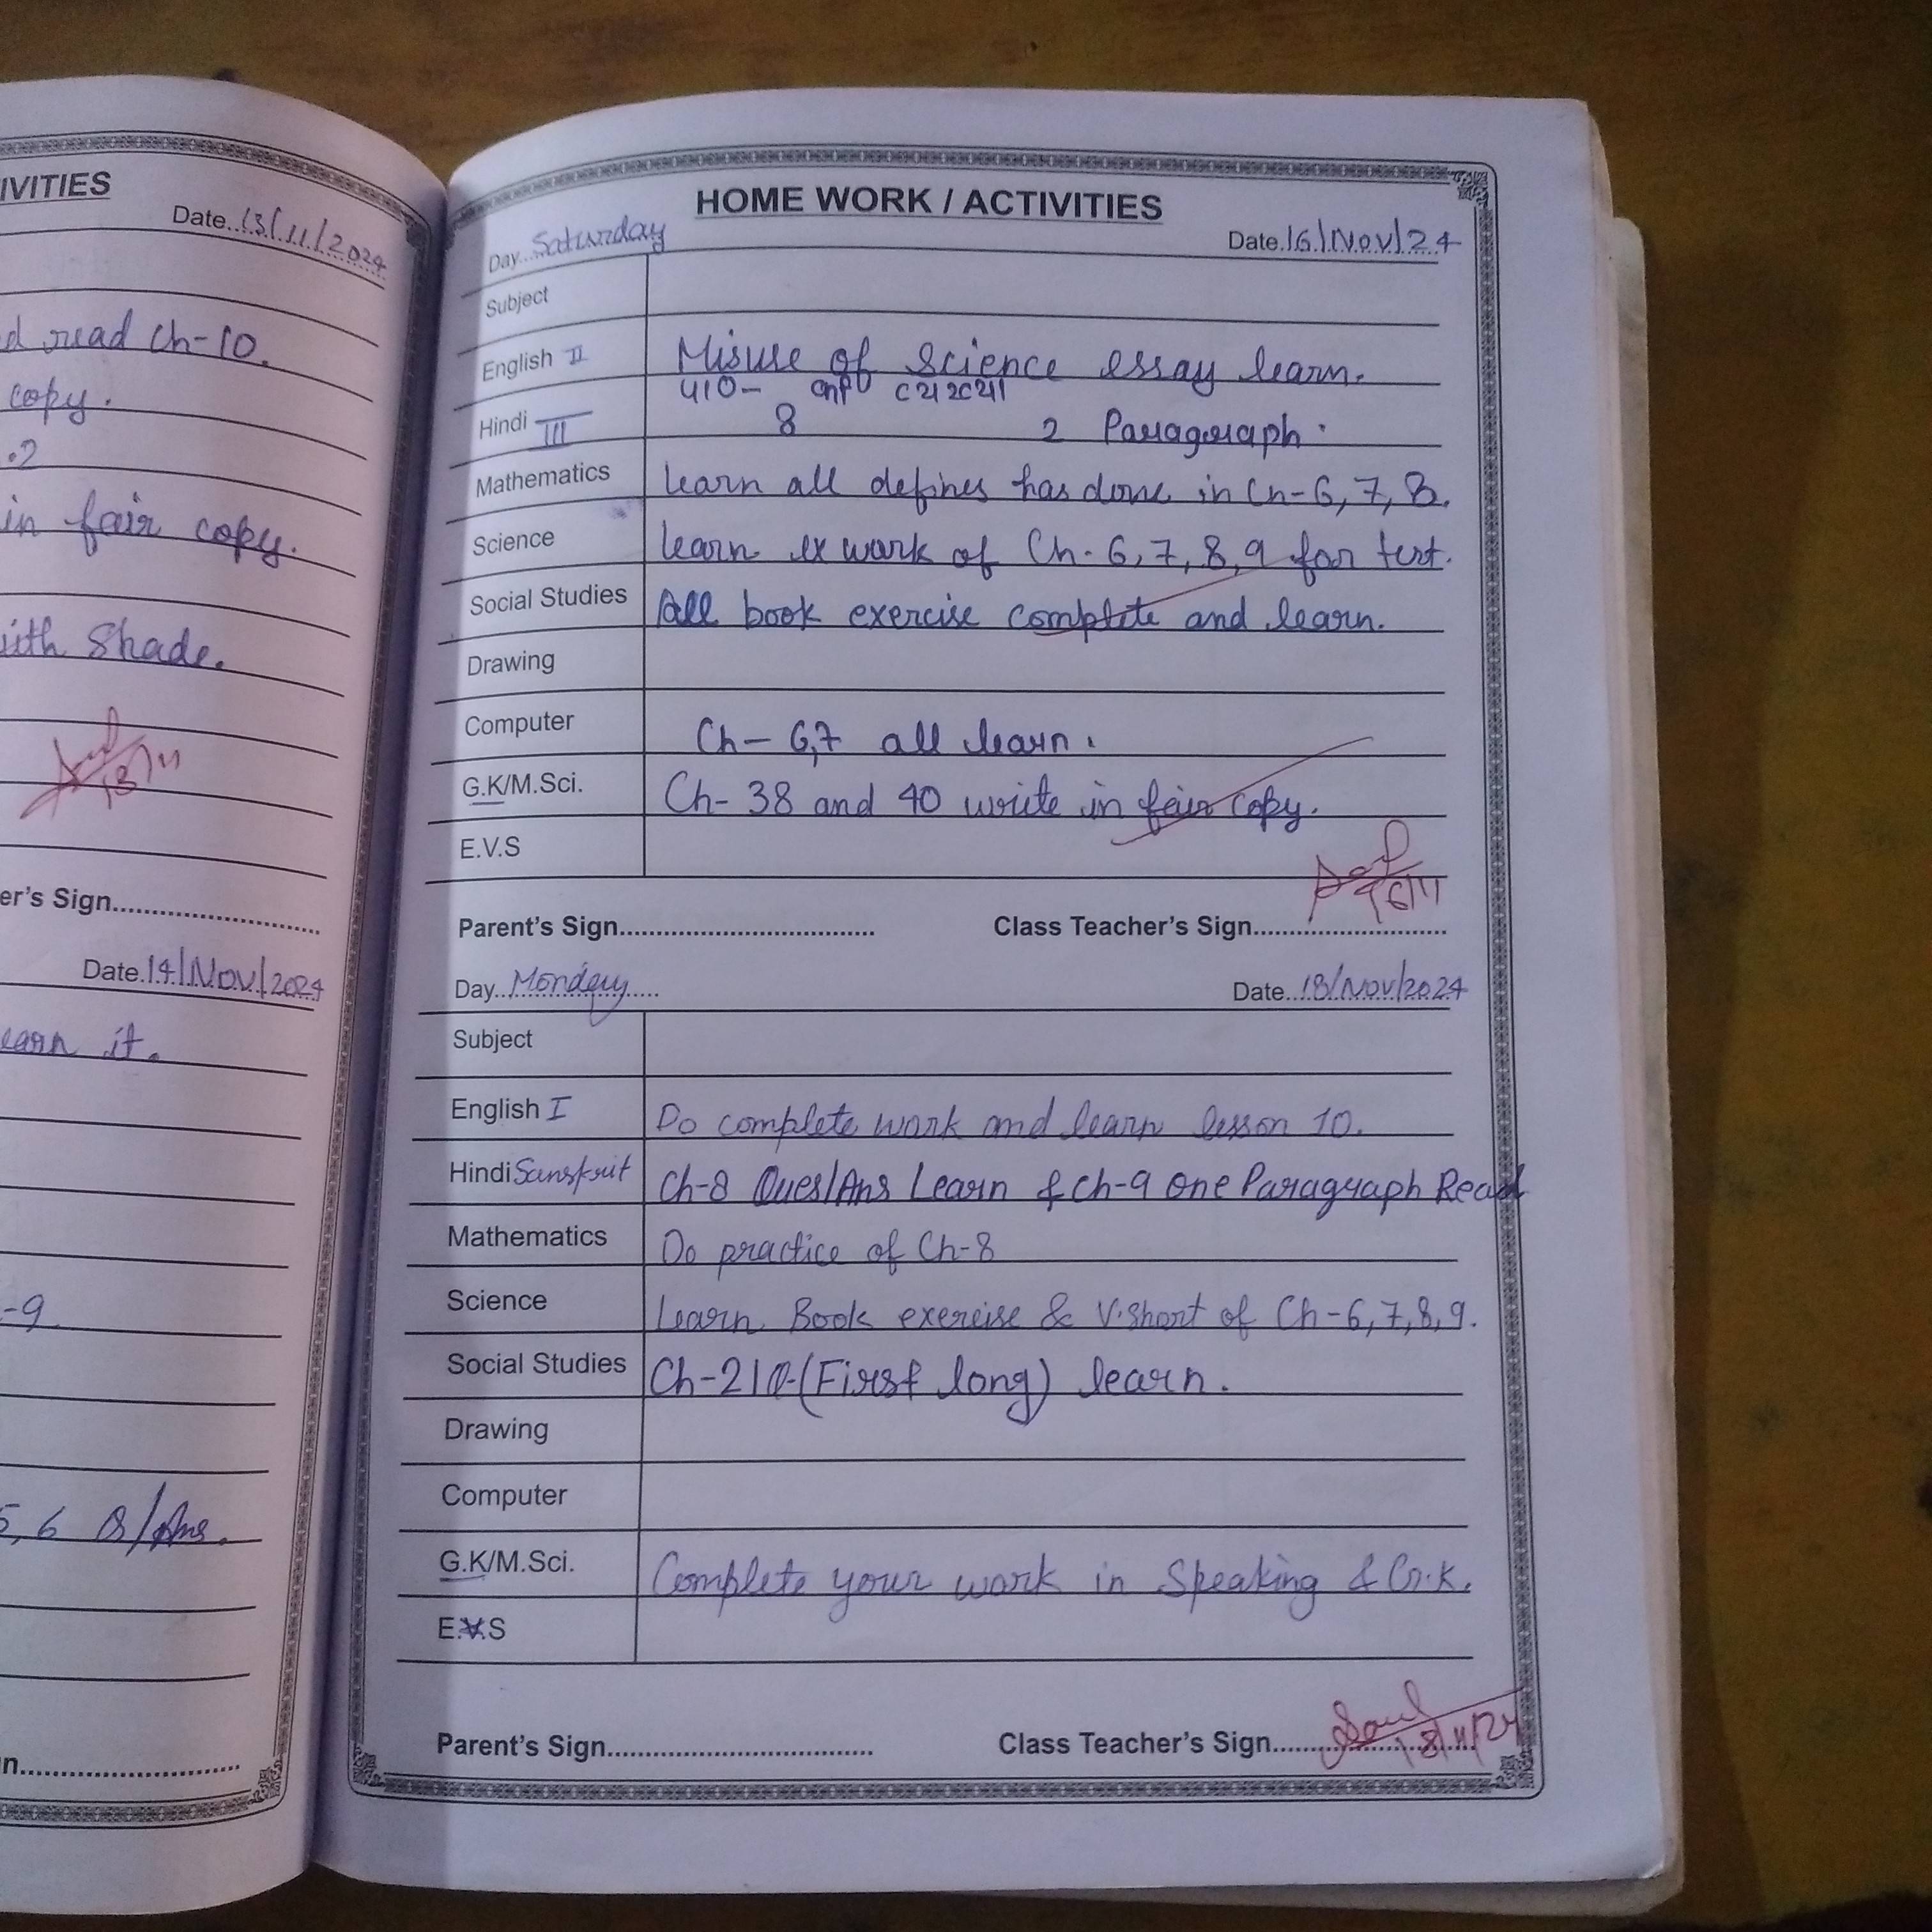 IVITIES
Date..13/11/2024
d read Ch-10.
copy.
.2
in fair copy.
ith Shade.
13/11
er's Sign..............................
Date.14/Nov/2024
earn it.
-9
5,6 Q/Ans.
n..............................
HOME WORK / ACTIVITIES
Day...Saturday
Date.16/Nov/24
Subject
English II Misuse of Science essay learn.
पाठ-
Hindi III 8 2 Paragraph.
Mathematics learn all defines has done in Ch-6, 7, 8.
Science learn ex work of Ch-6, 7, 8, 9 for test.
Social Studies All book exercise complete and learn.
Drawing
Computer Ch-6,7 all learn.
G.K/M.Sci. Ch-38 and 40 write in fair copy.
E.V.S
16/11
Parent's Sign................................... Class Teacher's Sign...........................
Day..Monday.... Date..18/Nov/2024
Subject
English I Do complete work and learn lesson 10.
Hindi Sanskrit Ch-8 Ques/Ans Learn & Ch-9 one Paragraph Read
Mathematics Do practice of Ch-8
Science Learn Book exercise & V.Short of Ch-6,7,8,9.
Social Studies (First long) learn.
Drawing
Computer
G.K/M.Sci. Complete your work in Speaking & G.K.
E.V.S
Parent's Sign.................................... Class Teacher's Sign............................
18/11/24